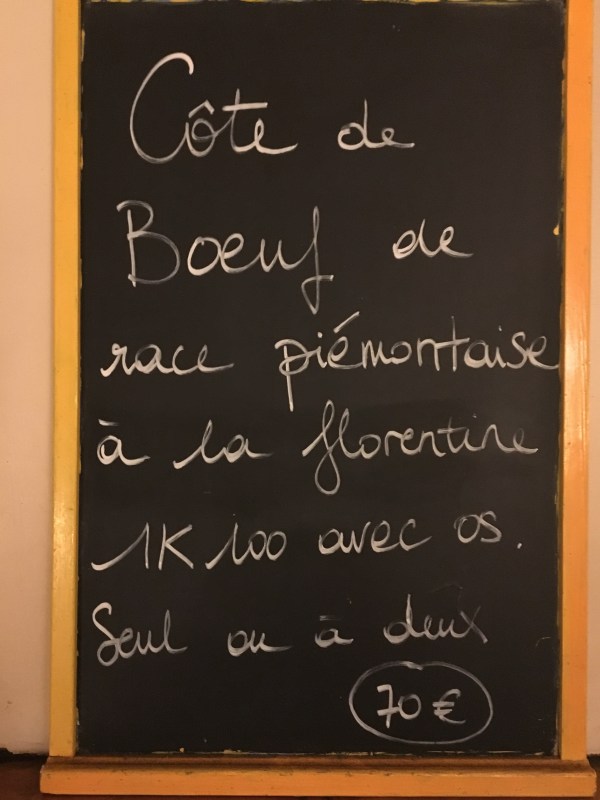 Côte de
Boeuf de
race piémontaise
à la florentine
1K100 avec os.
Seul ou à deux
70€